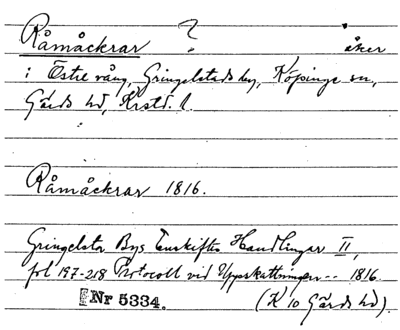 Råmåckrar ? åker
i Östre vång, Gringelstads by, Köpinge sn,
Gärds hd, Krstd. l.
Råmåckrar 1816.
Gringelsta Bys Enskiftes Handlingar II,
fol 197-218 Protocoll vid Uppskattningen -- 1816.
Nr 5334. (K 10 Gärds hd).